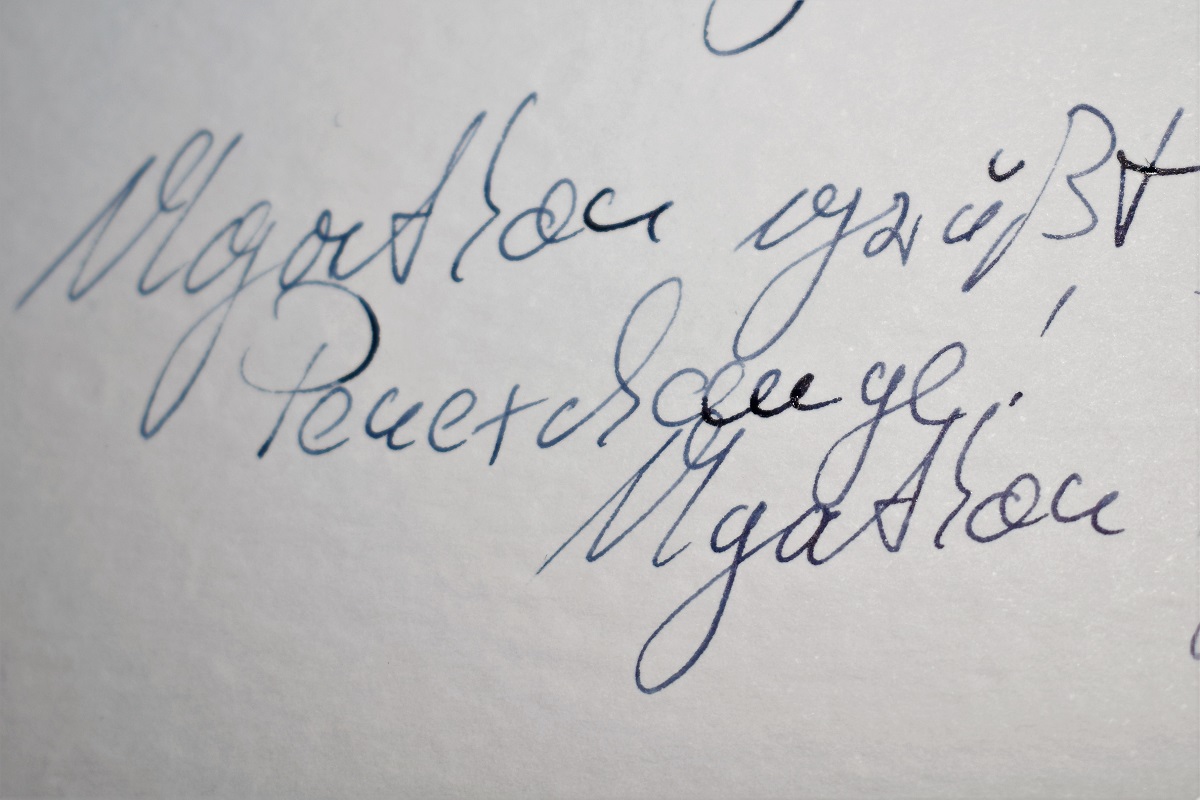 Mgathon grüßt
Penexchaugl!
Mgathon